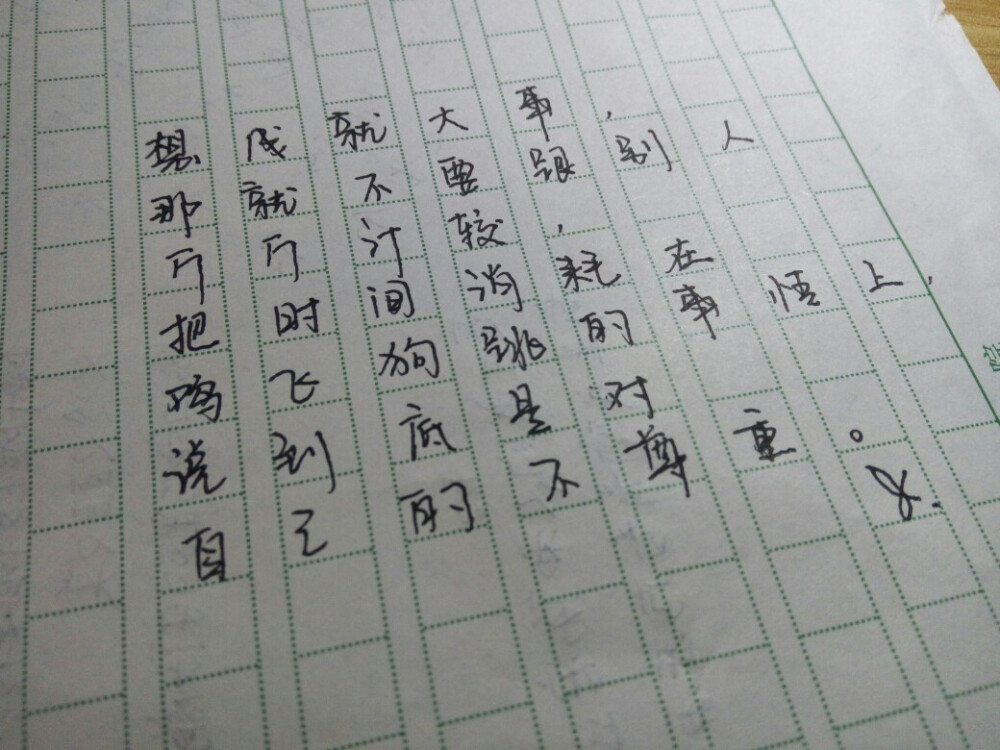 想成就大事,
那就不要跟别人
斤斤计较,
把时间消耗在
鸡飞狗跳的事情上,
说到底是对
自己的不尊重。